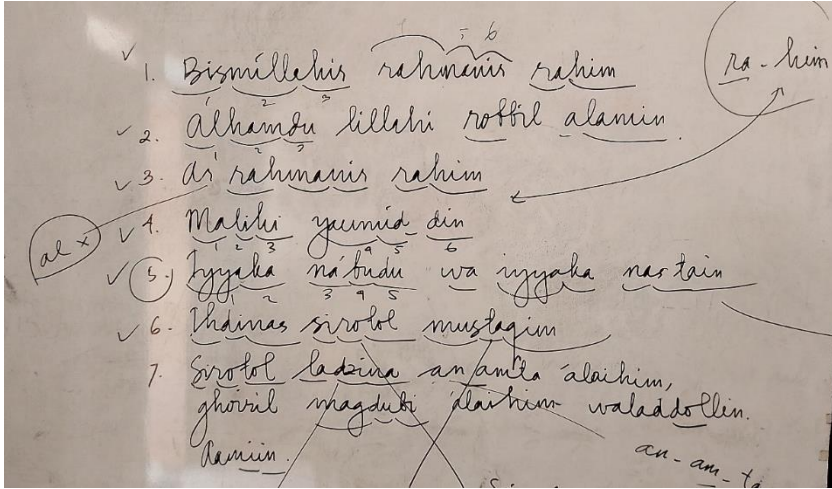 1 - 6
1. Bismillahis rahmanis rahim
ra - him
1 2 3
2. Alhamdu lillahi robbil alamin.
1 2 3
3. Ar rahmanis rahim
al x
4. Maliki yaumid din
1 2 3 4 5 6
5. Iyyaka na'budu wa iyyaka nas tain
1 2 3 4 5
6. Ihdinas sirotol mustaqim
7. Sirotol ladzina an amta 'alaihim,
ghoiril magdubi alaihim waladdollin.
Aamiin.
an - am - ta